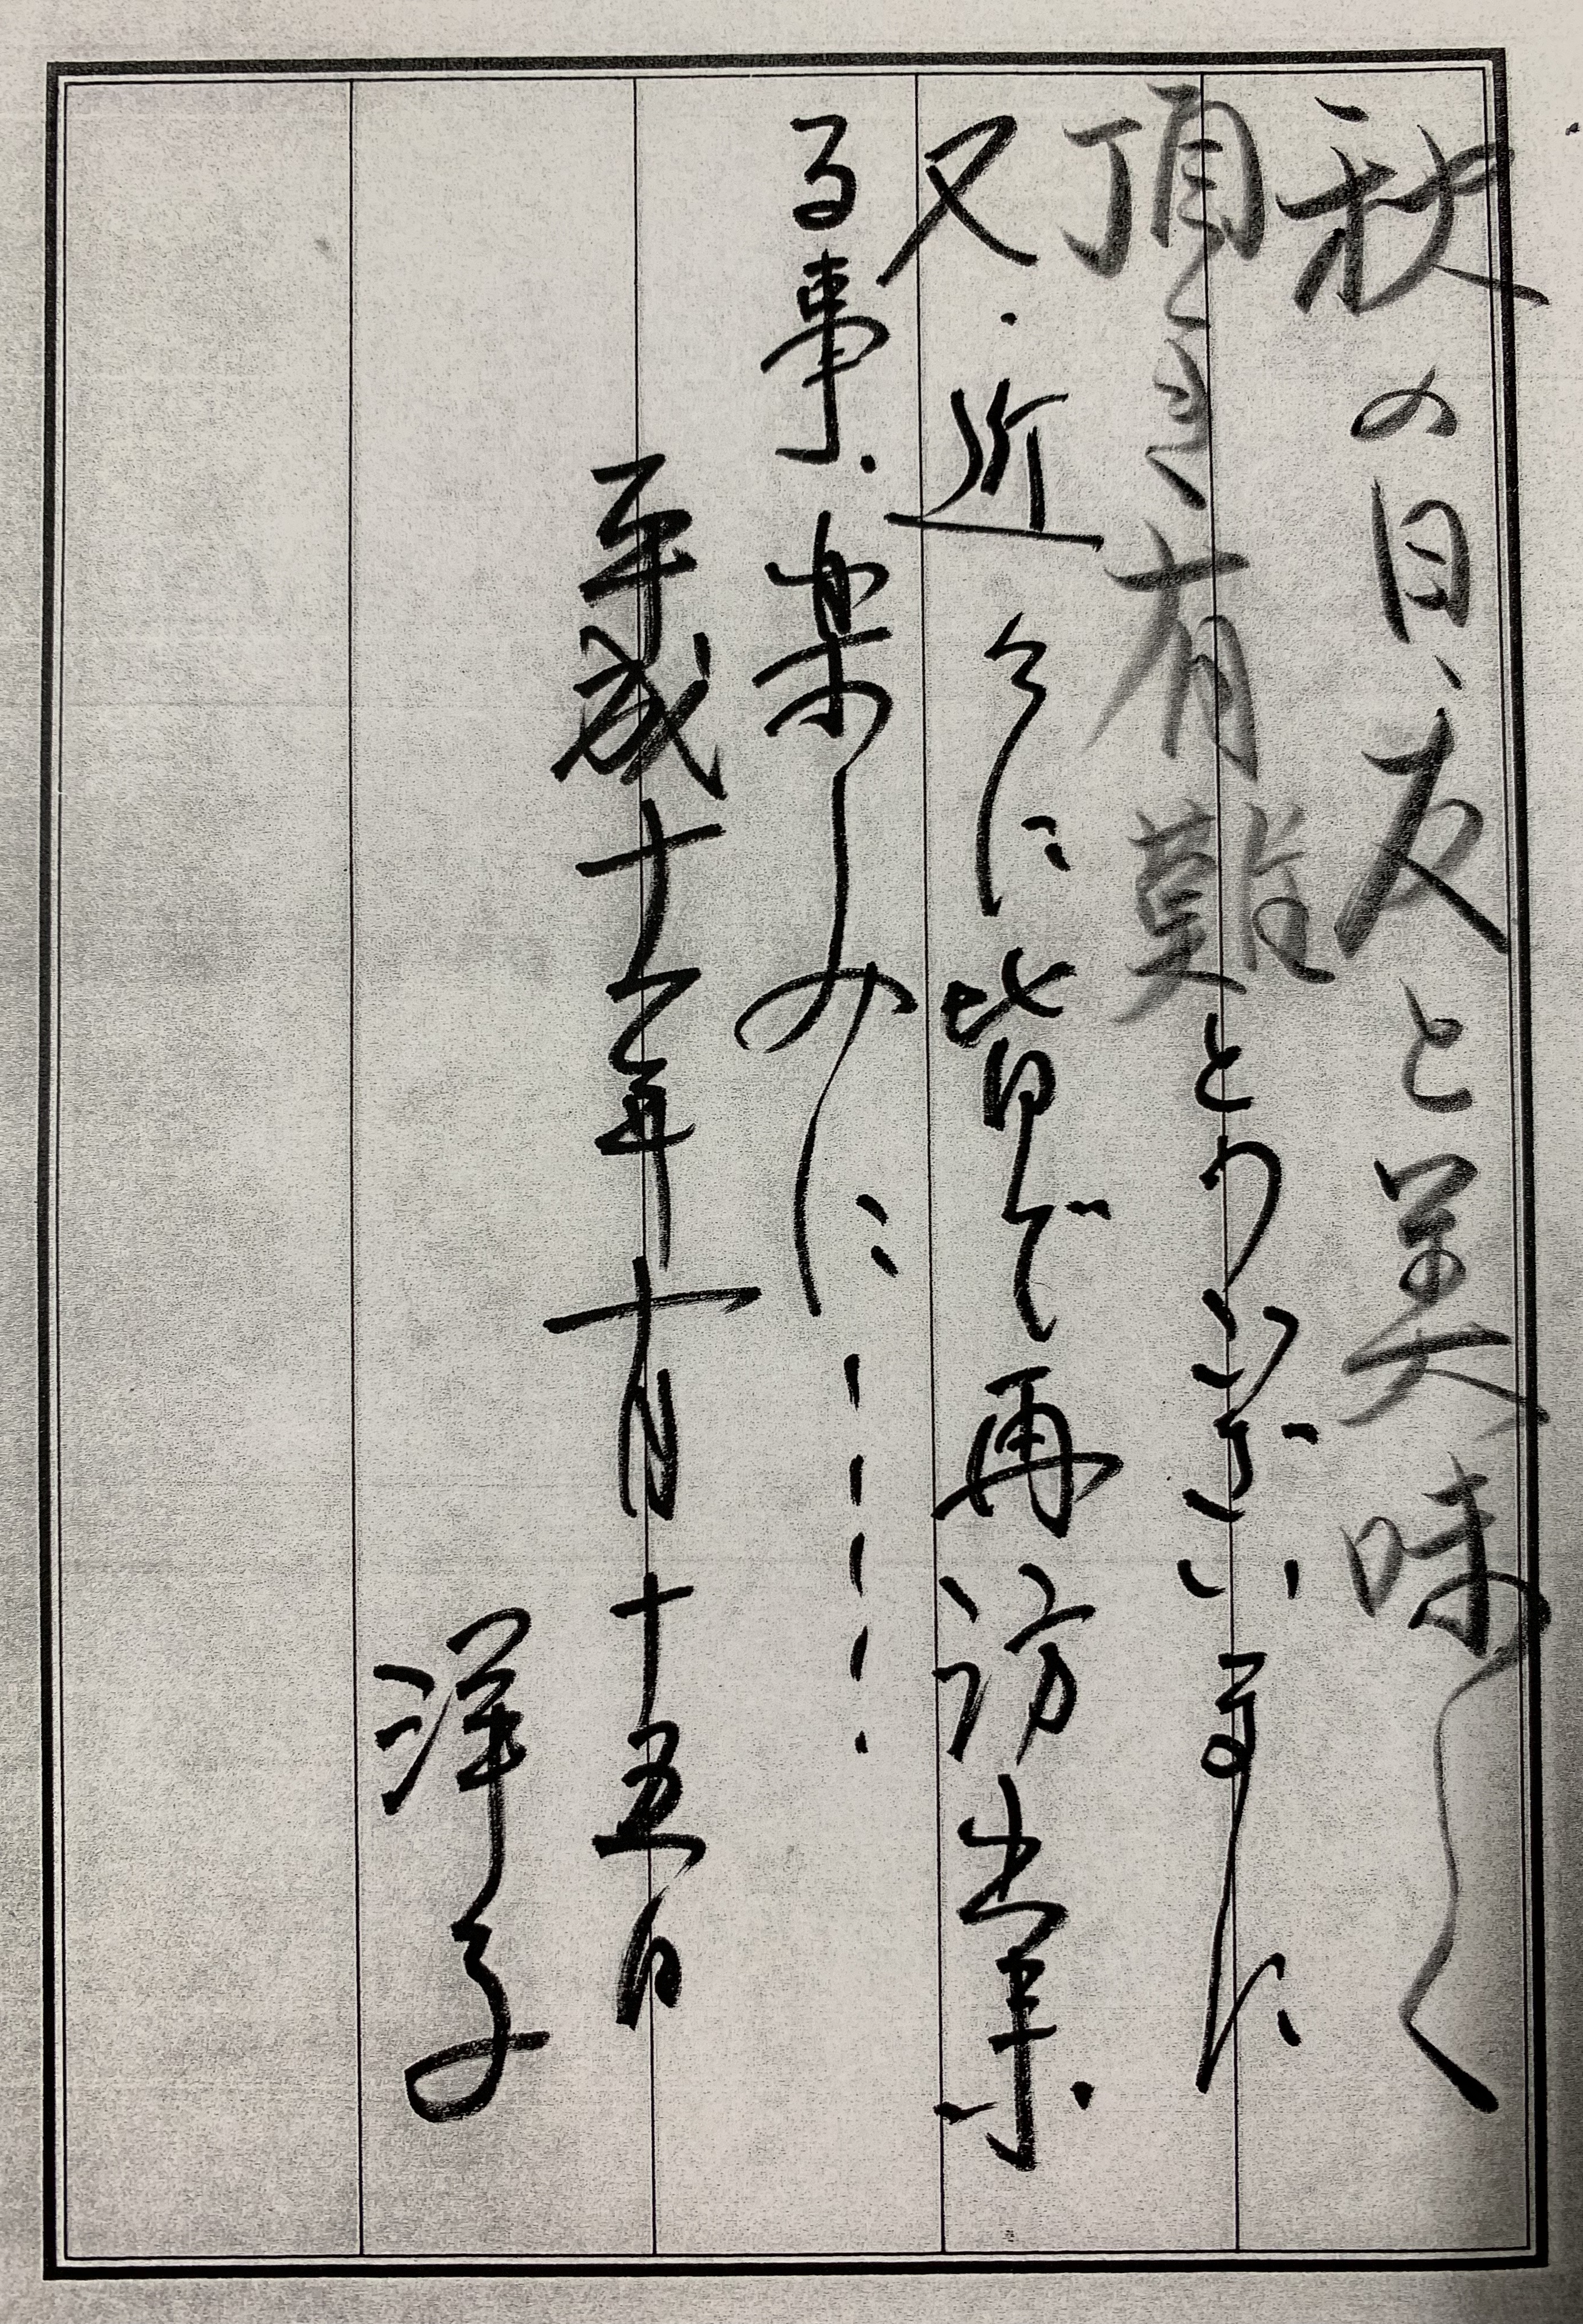 秋の日、友と美味しく
頂き有難とうございました
又、近々に皆で再訪出来
る事、楽しみに----.
平成十年十月十五日
洋子